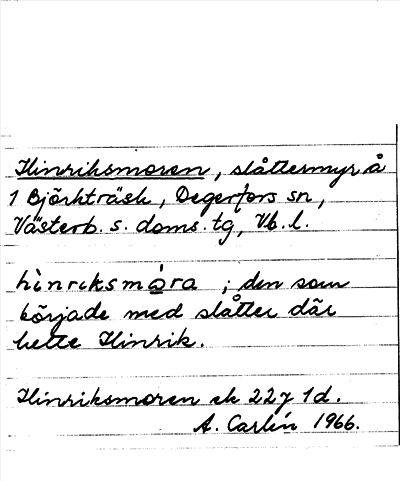 Hinriksmoren, slåttermyr å
1 Björkträsk, Degerfors sn,
Västerb. s. doms. tg, Vb. l.
hìnrɩksmó̱ra ; den som
började med slåtter där
hette Hinrik.
Hinriksmoren ek 22j 1d.
A. Carlín 1966.